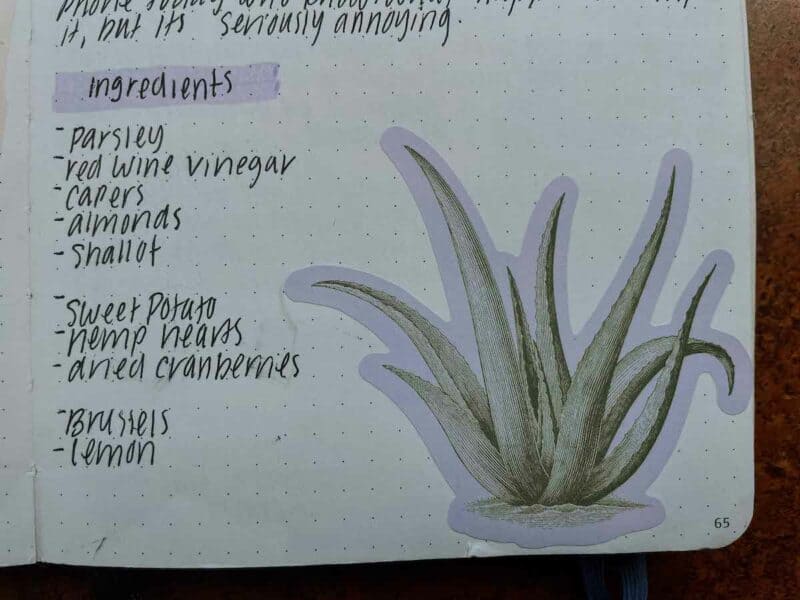 phone today who
it, but its seriously annoying.
Ingredients
- parsley
- red wine vinegar
- capers
- almonds
- shallot
- sweet potato
- hemp hearts
- dried cranberries
- Brussels
- lemon
65